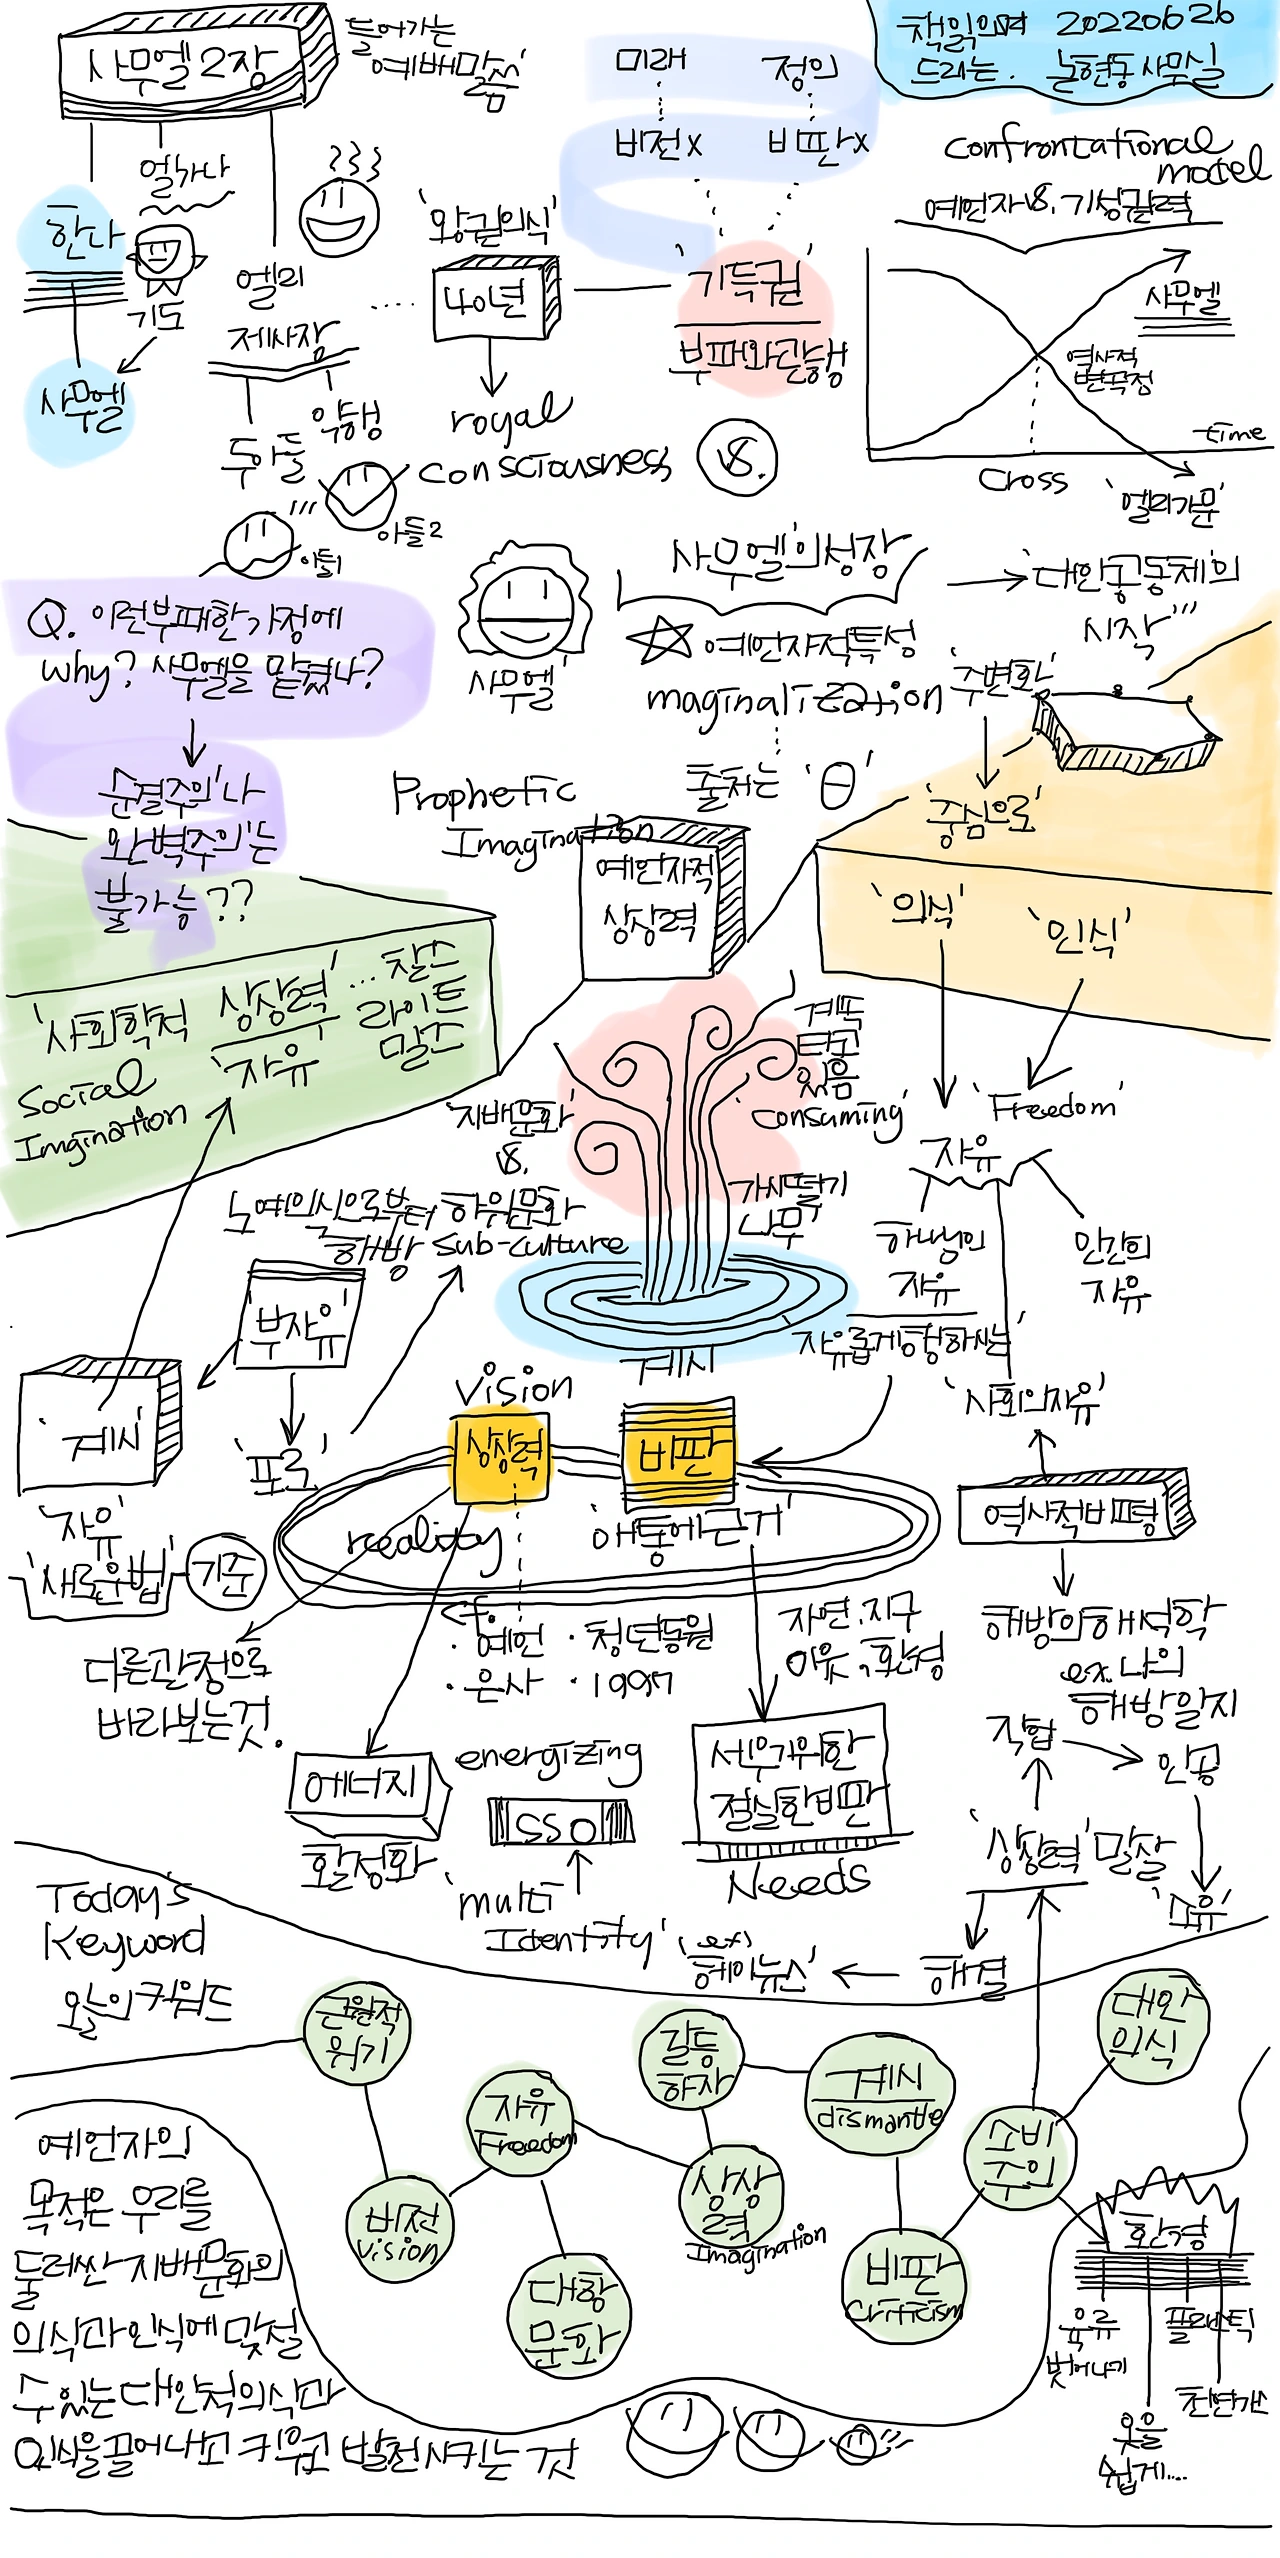 사무엘 2장
들어가는
예배말씀
책읽으며 20220626
드리는. 논현동 사무실
미래
정의
비전 x
비판 x
confrontational
model
예언자 vs. 기성권력
사무엘
역사적
변곡점
time
cross
'엘리가문'
한나
얼가나
기도
사무엘
엘리
제사장
두아들
악행
아들1
아들2
'왕권의식'
40년
royal
consciousness
vs.
'기득권'
부패와 관행
Q. 이런 부패한 가정에
why? 사무엘을 맡겼나?
순결주의'나
완벽주의'는
불가능??
'사무엘'
사무엘'의 성장
☆ 예언자적 특성
maginalization
'주변화'
'중심으로'
'대안공동체'의
시작
출처는 'Θ'
Prophetic
Imagination
예언자적
상상력
'의식'
'인식'
'사회학적 상상력' ... 찰스
라이트
밀즈
'자유'
Social
Imgination
'지배문화'
vs.
하위문화
sub-culture
노예의식으로부터
해방
계속
타고
있음
consuming'
가시떨기
나무
계시
'Freedom'
자유
하나님의
자유
인간의
자유
자유롭게 행하시는'
'사회의 자유'
'부자유'
'포로'
'계시'
'자유'
'새로운 법'
기준
vision
상상력
비판
reality
'애통에 근거'
역사적 비평
해방의 해석학
ex. 나의
해방일지
다른 관점으로
바라보는 것.
cf.
· 예언
· 은사
· 청년동원
· 1997
자연, 지구
이웃, 환경
에너지
활성화
energizing
SSO
'multi
Identity'
세우기 위한
절실한 비판
Needs
직업
인공
'상상력' 말살
해결
ex)
Today's
Keyword
오늘의 키워드
근원적
위기
비전
vision
자유
Freedom
대항
문화
갈등
하자
상상
력
Imagination
계시
dismantle
비판
criticism
소비
주의
대안
의식
환경
육류
벗어나기
플라스틱
옷을
쉽게...
예언자의
목적은 우리를
둘러싼 지배문화의
의식과 인식에 맞설
수 있는 대안적 의식과
인식을 끌어내고 키우고 발전시키는 것